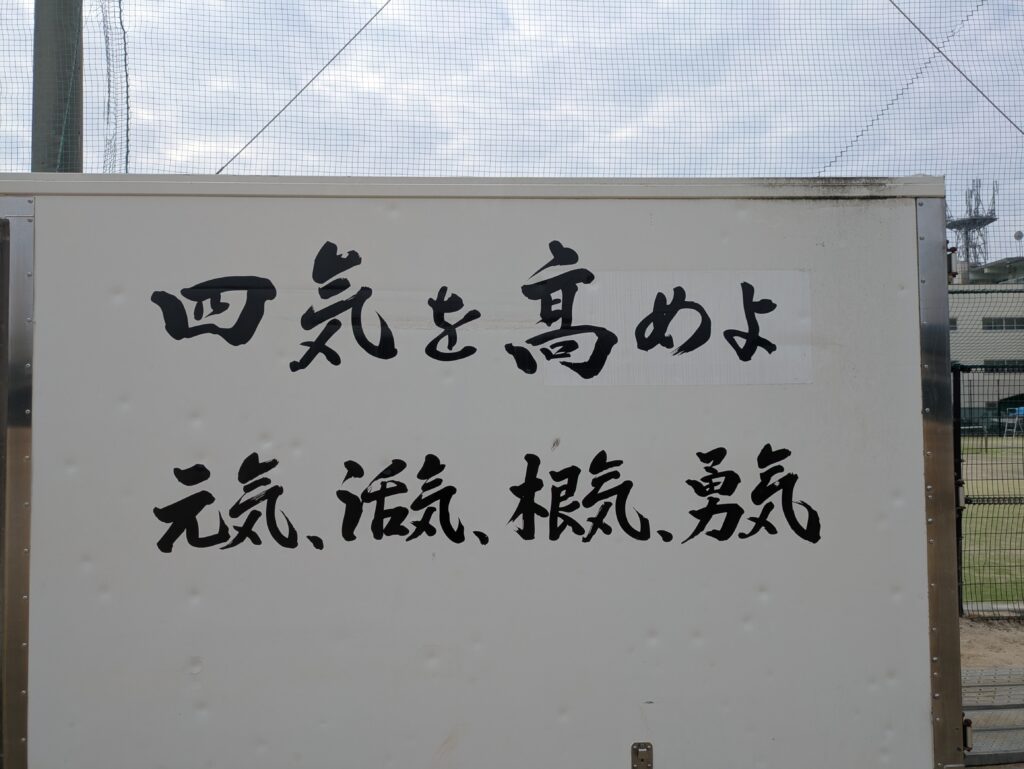 四気を高めよ
元気、活気、根気、勇気